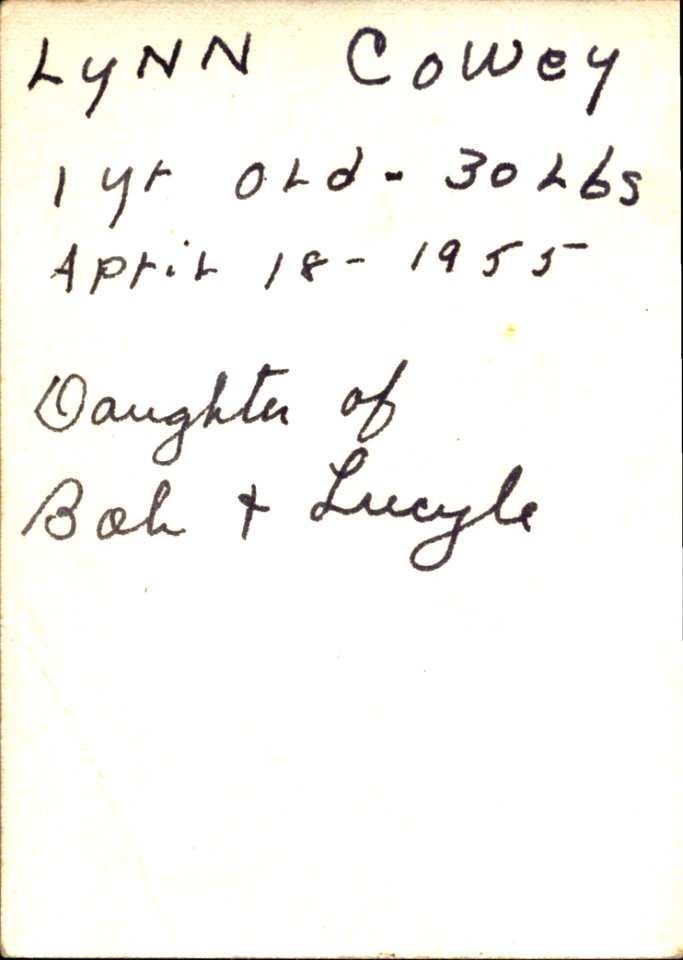 LyNN CoWey
1 yr OLd - 30 Lbs
April 18 - 1955
Daughter of
Bob + Lucyle